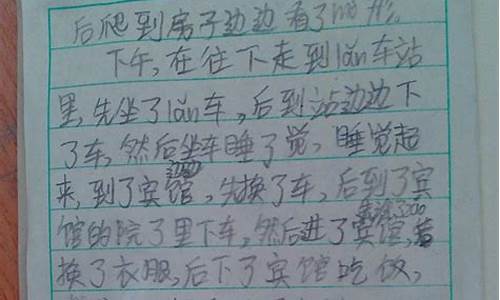 后爬到房子边边看了
下午,在往下走到lǎn车站
里,先坐了lǎn车,后到站边边下
了车,然后坐车睡了觉,睡觉起
来,到了宾馆,先换了车,后到了宾
馆的院了里下车,然后进了宾馆,
换了衣服,后下了宾馆吃饭,